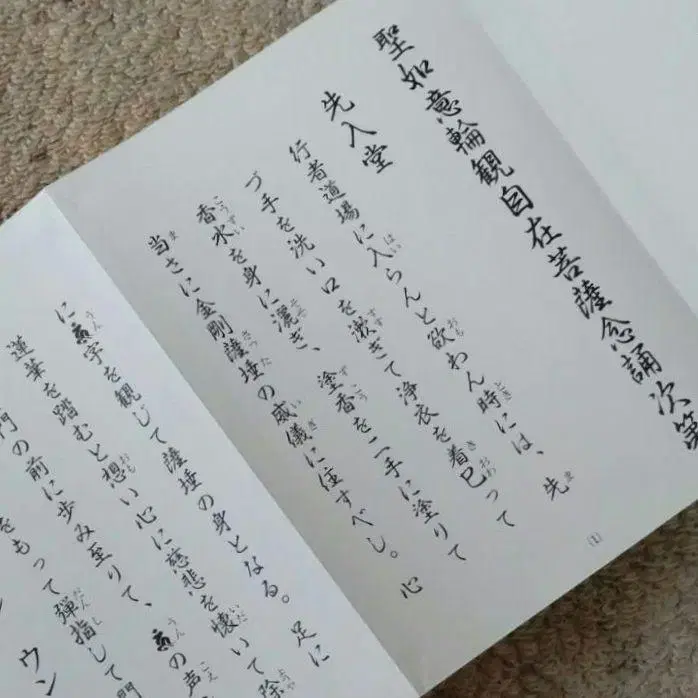 聖如意輪観自在菩薩念誦次第
先入堂
行者道場に入らんと欲わん時には、先
づ手を洗い口を漱ぎて浄衣を着已って
香水を身に灑ぎ、塗香を二手に塗りて
当さに金剛薩埵の威儀に住すべし。心
(1)
に字を観じて薩埵の身となる。足に
蓮華を踏むと想い心に慈悲を懐いて除
門の前に歩み至りて、の声
をもって弾指して門
ウン